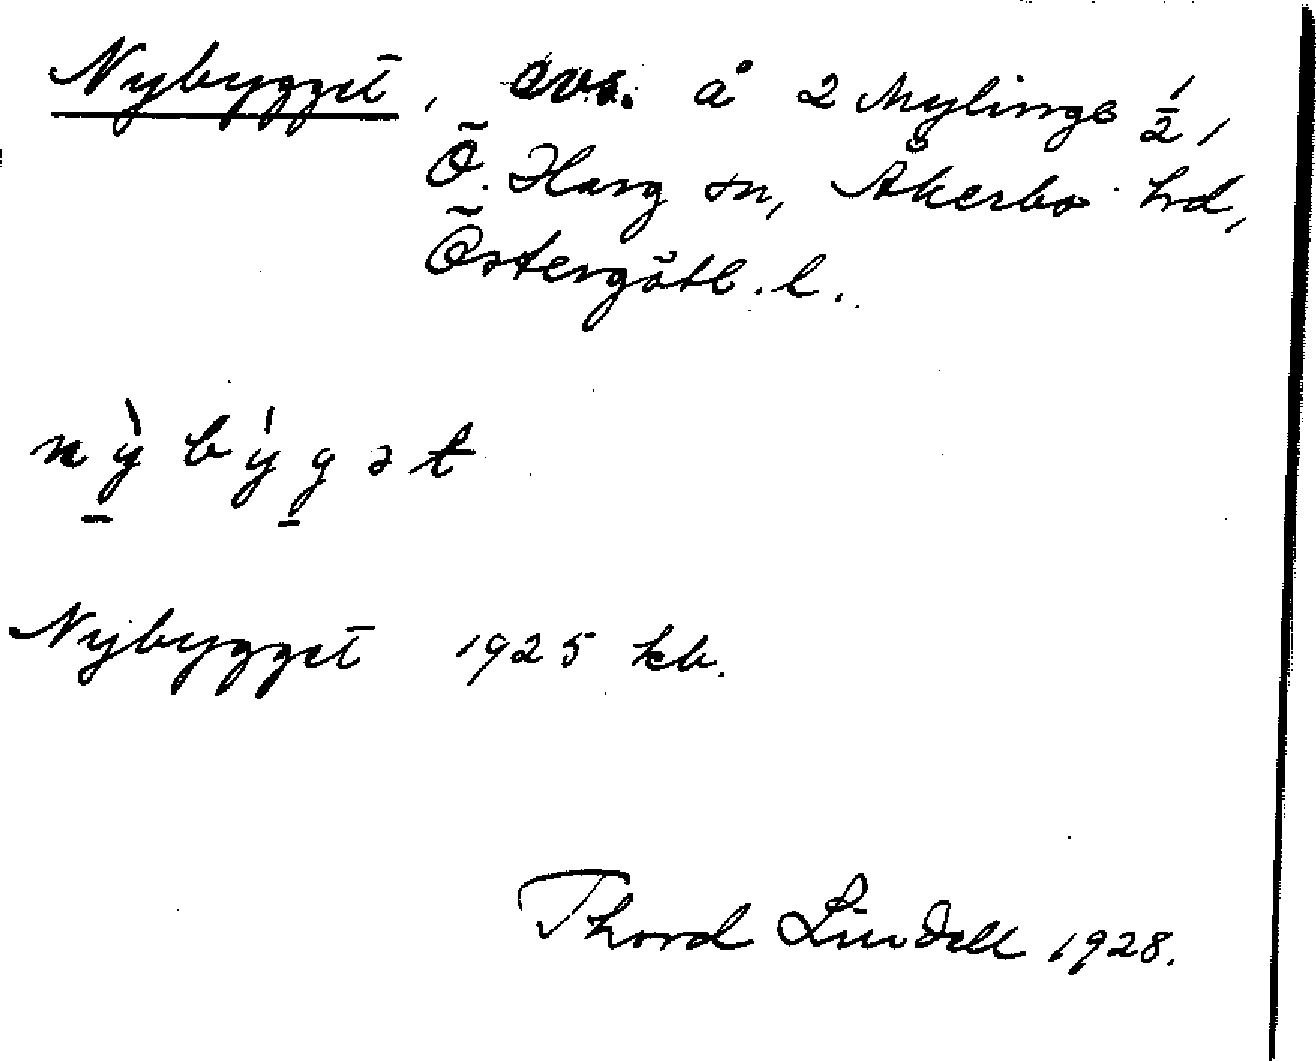 Nybygget, avs. å 2 Mylinge 1/2,
Ö. Harg sn, Åkerbo hd,
Östergötl. l.
nỳbýgət
Nybygget 1925 kb.
Thord Lindell 1928.